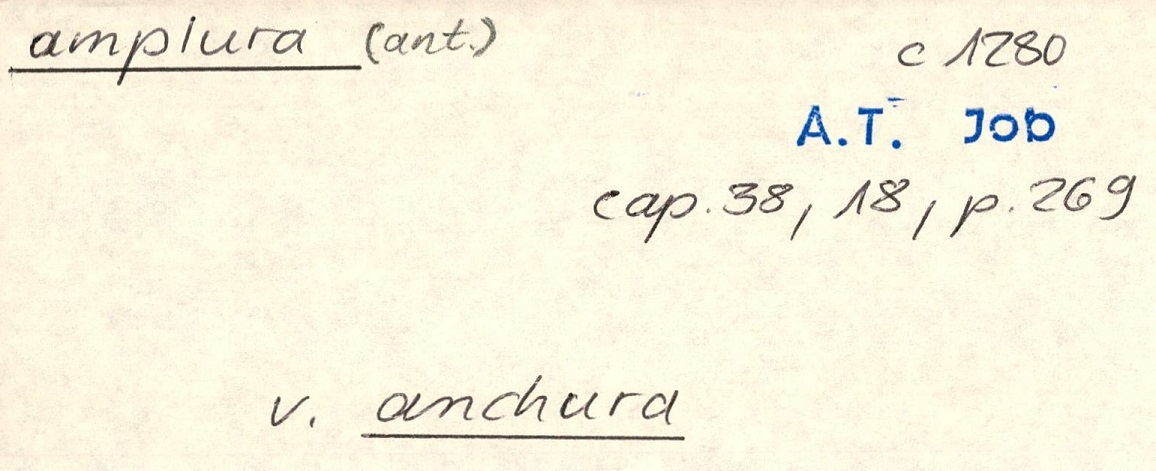 amplura (ant.) c 1280
A.T. Job
cap. 38, 18, p. 269
v. anchura